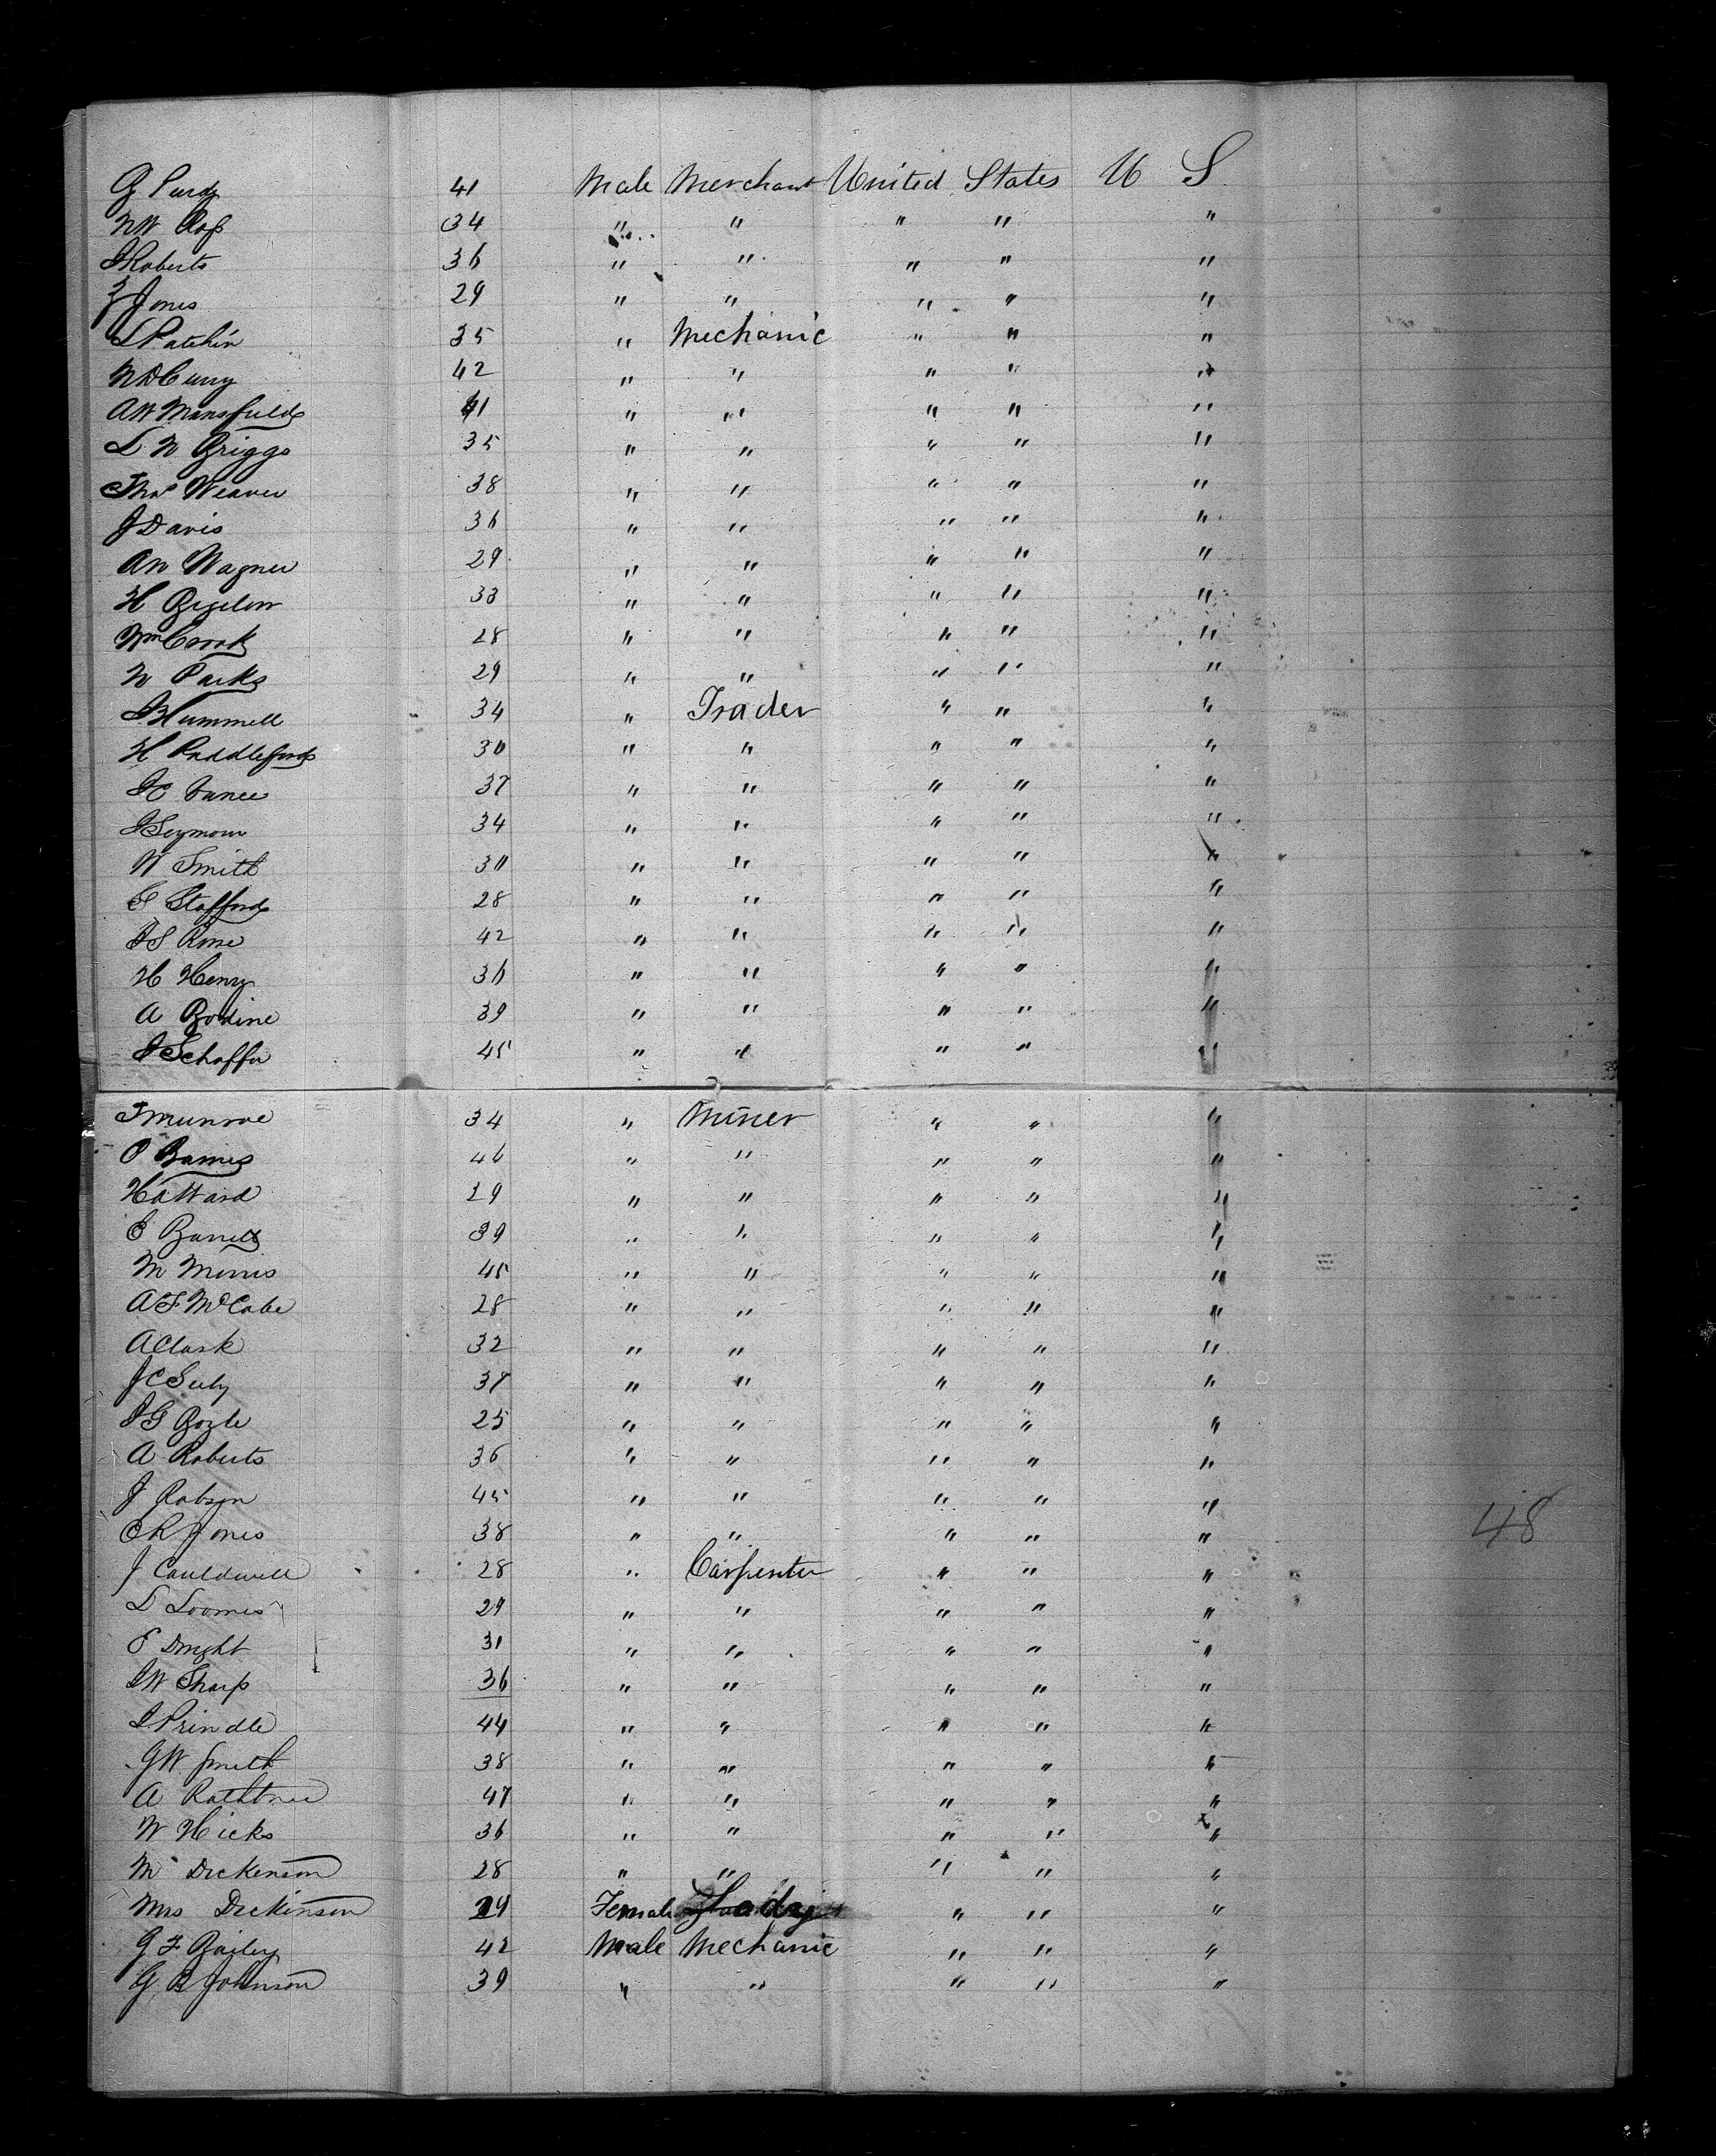 G Purdy 41 Male Merchant United States U S
N W Ross 34 " " " " "
J Roberts 36 " " " " "
Z Jones 29 " " " " "
L Patchin 35 " Mechanic " " "
N D Curry 42 " " " " "
A W Mansfield 41 " " " " "
L N Briggs 35 " " " " "
Thos Weaver 38 " " " " "
J Davis 36 " " " " "
A W Wagner 29 " " " " "
H Bigelow 33 " " " " "
Wm Crook 28 " " " " "
W Parks 29 " " " " "
J Hummell 34 " Trader " " "
H Paddleford 30 " " " " "
J C Vance 37 " " " " "
J Seymour 34 " " " " "
W Smith 30 " " " " "
G Stafford 28 " " " " "
J S Rone 42 " " " " "
H Henry 36 " " " " "
A Bodine 39 " " " " "
J Schaffer 45 " " " " "
J Munroe 34 " Miner " " "
O Barnes 46 " " " " "
H A Ward 29 " " " " "
E Barrett 39 " " " " "
M Morris 45 " " " " "
A F McCabe 28 " " " " "
A Clark 32 " " " " "
J C Seely 37 " " " " "
J G Bogle 25 " " " " "
A Roberts 36 " " " " "
J Robson 45 " " " " "
48
C R Jones 38 " " " " "
J Cauldwell 28 " Carpenter " " "
L Loomes 29 " " " " "
E Dwight 31 " " " " "
J W Sharp 36 " " " " "
J Prindle 44 " " " " "
G W Smith 38 " " " " "
A Rathbone 47 " " " " "
W Hicks 36 " " " " "
M Dickenson 28 " " " " "
Mrs Dickinson 29 Female Lady " " "
G F Bailey 42 Male Mechanic " " "
G B Johnson 39 " " " " "